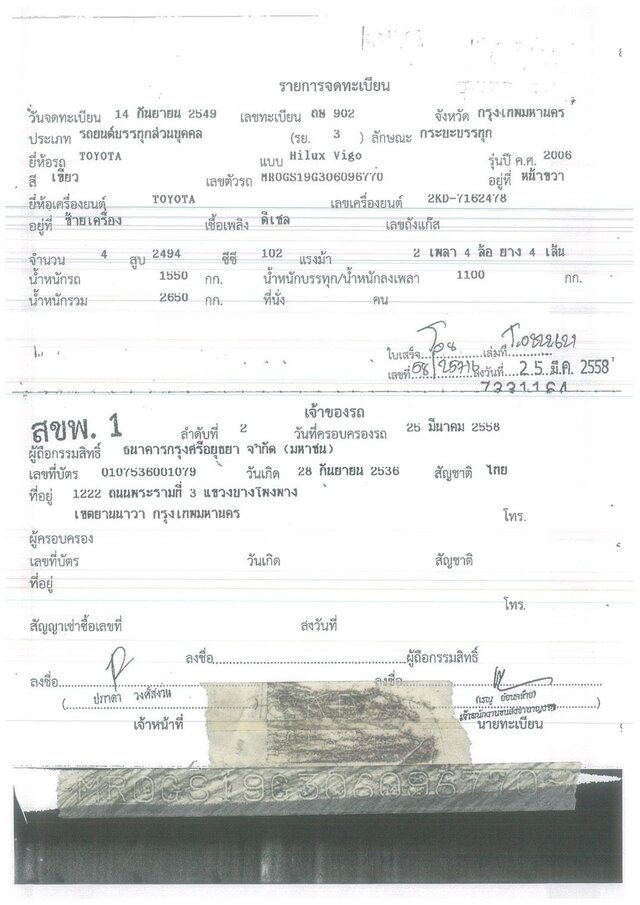 รายการจดทะเบียน
วันจดทะเบียน 14 กันยายน 2549 เลขทะเบียน ถษ 902 จังหวัด กรุงเทพมหานคร
ประเภท รถยนต์บรรทุกส่วนบุคคล (รย. 3 ) ลักษณะ กระบะบรรทุก
ยี่ห้อรถ TOYOTA แบบ Hilux Vigo รุ่นปี ค.ศ. 2006
สี เขียว เลขตัวรถ MROGS19G306096770 อยู่ที่ หน้าขวา
ยี่ห้อเครื่องยนต์ TOYOTA เลขเครื่องยนต์ 2KD-7162478
อยู่ที่ ซ้ายเครื่อง เชื้อเพลิง ดีเซล เลขถังแก๊ส
จำนวน 4 สูบ 2494 ซีซี 102 แรงม้า 2 เพลา 4 ล้อ ยาง 4 เส้น
น้ำหนักรถ 1550 กก. น้ำหนักบรรทุก/น้ำหนักลงเพลา 1100 กก.
น้ำหนักรวม 2650 กก. ที่นั่ง คน
ใบเสร็จ เล่มที่
เลขที่ ลงวันที่ 25 มี.ค. 2558
7331164
เจ้าของรถ
สขพ. 1 ลำดับที่ 2 วันที่ครอบครองรถ 25 มีนาคม 2558
ผู้ถือกรรมสิทธิ์ ธนาคารกรุงศรีอยุธยา จำกัด (มหาชน)
เลขที่บัตร 0107536001079 วันเกิด 28 กันยายน 2536 สัญชาติ ไทย
ที่อยู่ 1222 ถนนพระรามที่ 3 แขวงบางโพงพาง
เขตยานนาวา กรุงเทพมหานคร โทร.
ผู้ครอบครอง
เลขที่บัตร วันเกิด สัญชาติ
ที่อยู่
โทร.
สัญญาเช่าซื้อเลขที่ ลงวันที่
ลงชื่อ ผู้ถือกรรมสิทธิ์
ลงชื่อ ลงชื่อ
เจ้าหน้าที่ นายทะเบียน
MROGS19G306096770